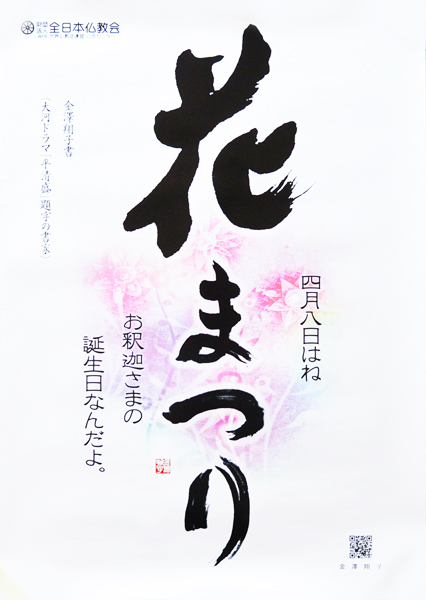 財団法人 全日本仏教会
花まつり
四月八日はね
お釈迦さまの
誕生日なんだよ。
金澤翔子書
(大河ドラマ「平清盛」題字の書家)
金澤翔子